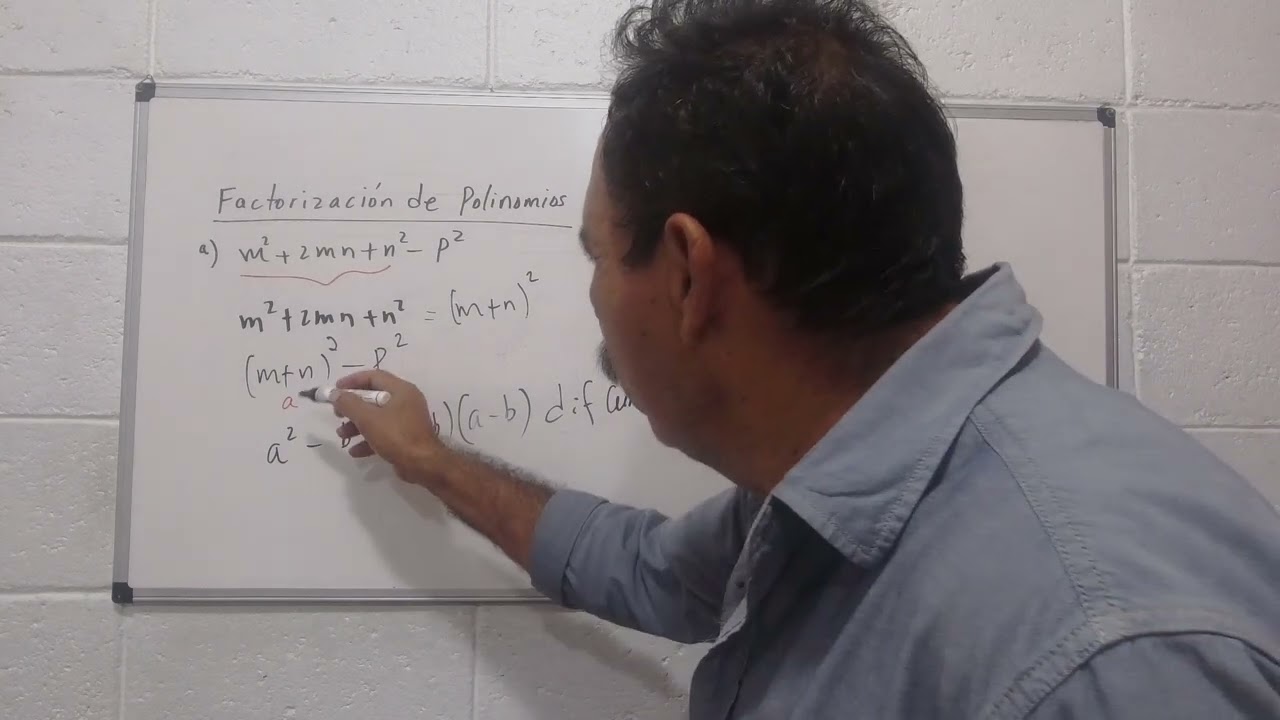 Factorización de Polinomios
a) m² + 2mn + n² - p²
m² + 2mn + n² = (m+n)²
(m+n)² - p²
a
a² - b)(a-b) dif